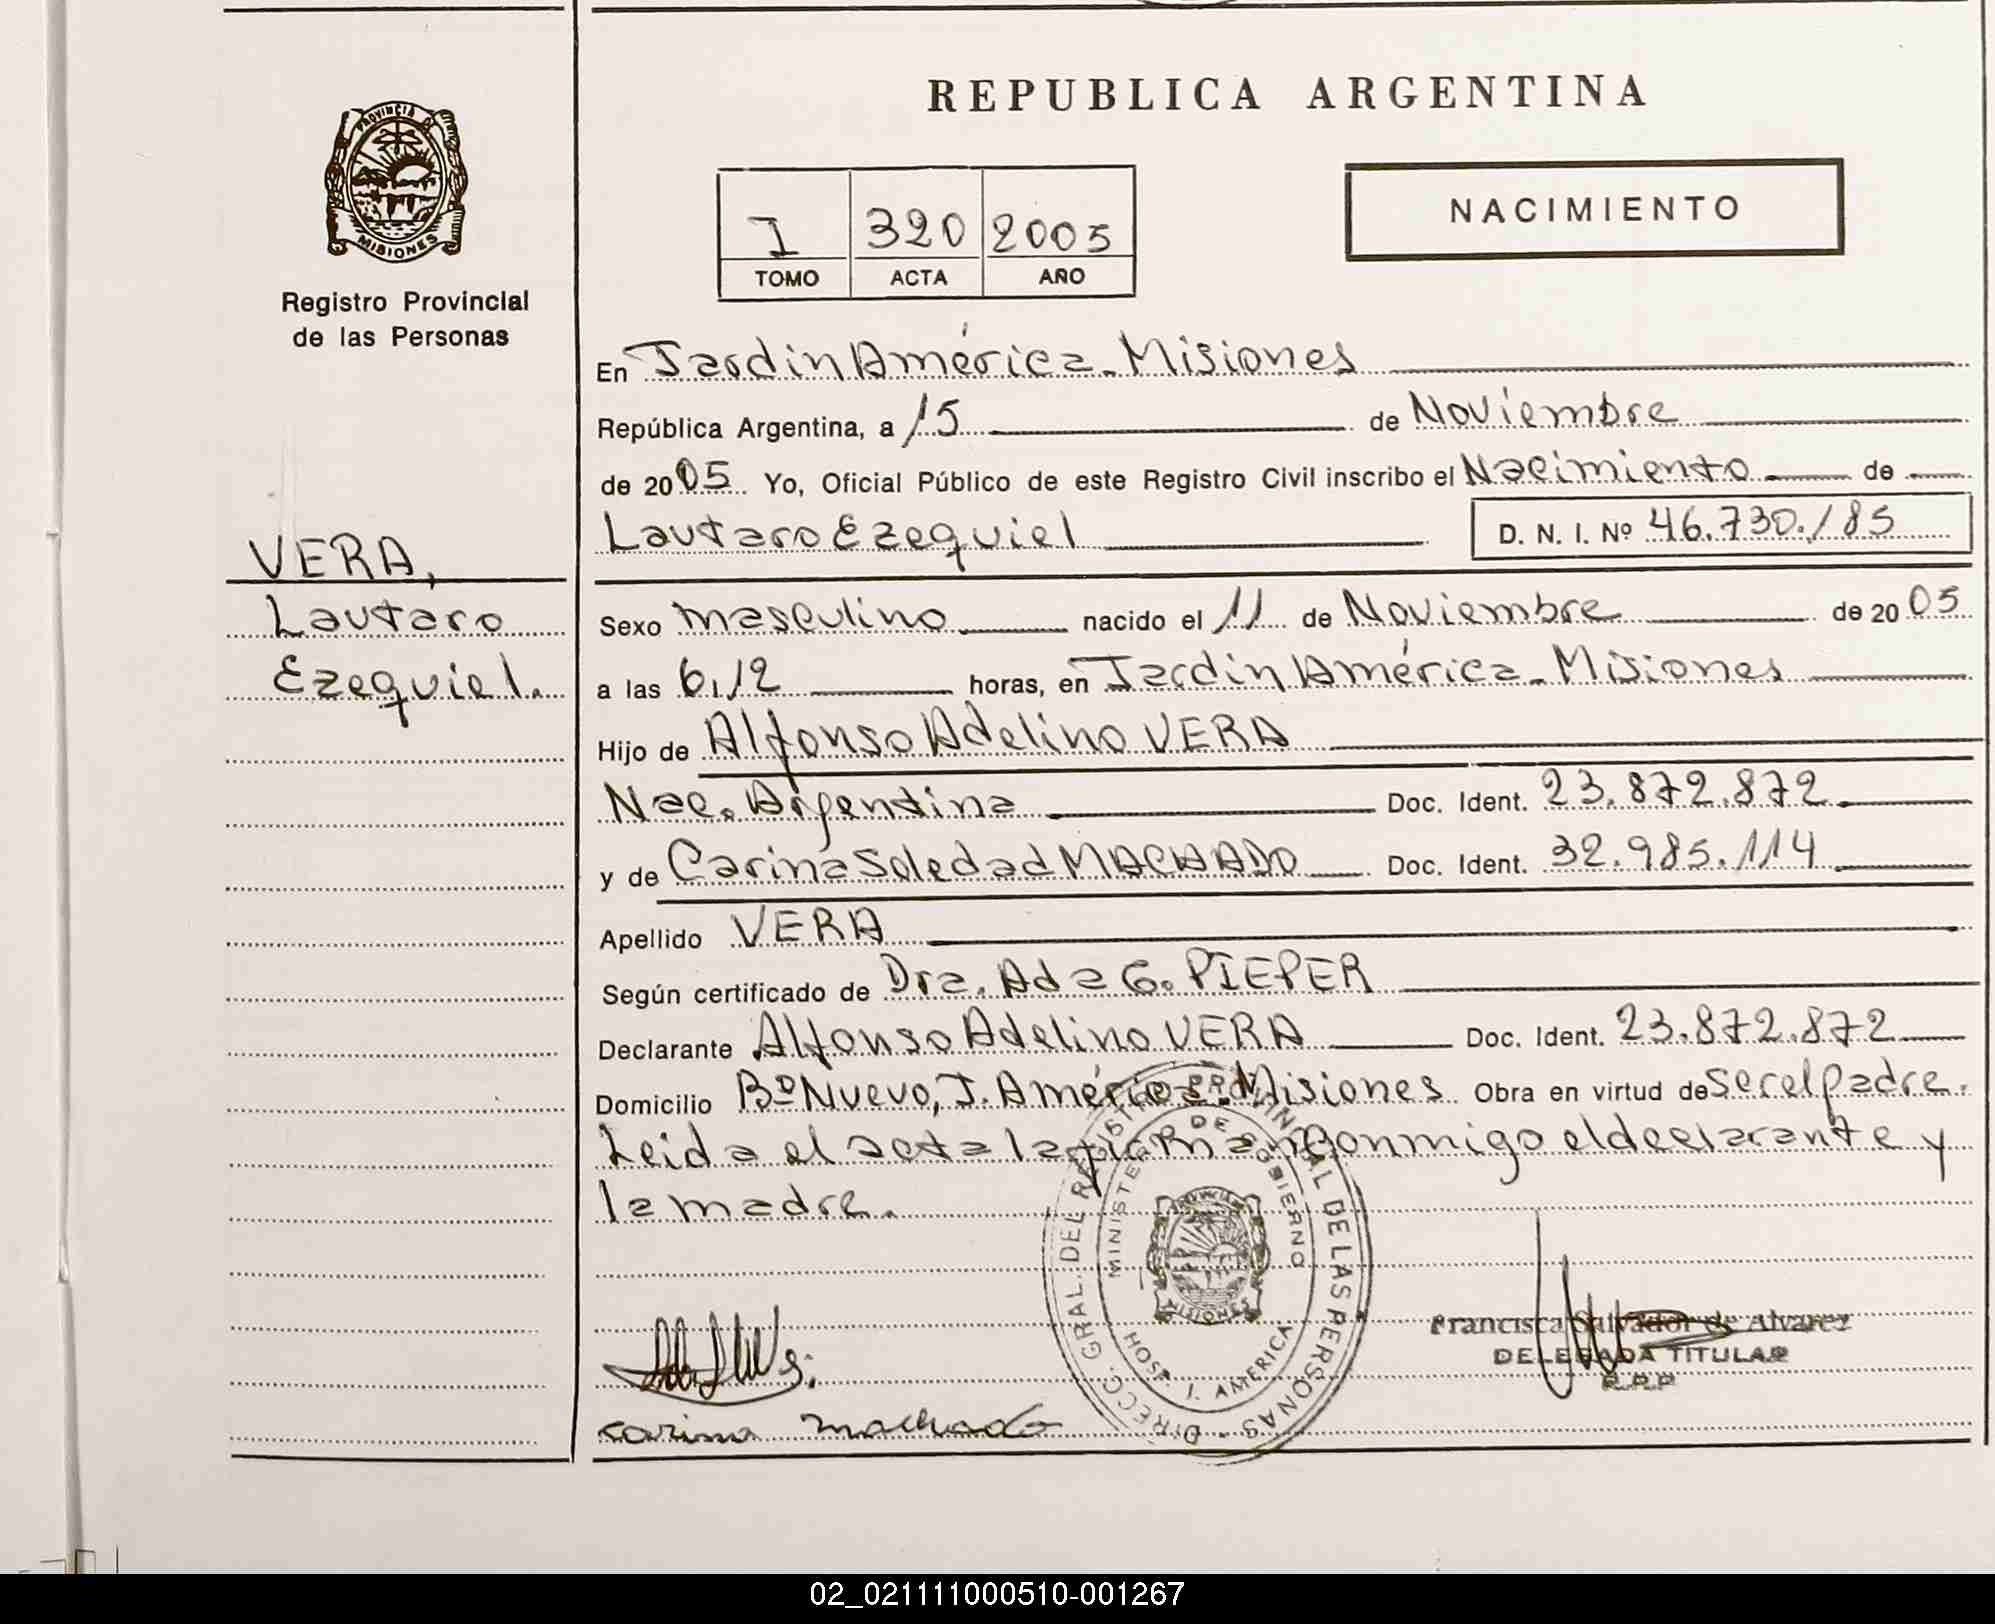 REPUBLICA ARGENTINA
PROVINCIA DE MISIONES
Registro Provincial
de las Personas
I 320 2005
TOMO ACTA AÑO
NACIMIENTO
En Jardin América - Misiones
República Argentina, a 15 de Noviembre
de 2005. Yo, Oficial Público de este Registro Civil inscribo el Nacimiento de
Lautaro Ezequiel D. N. I. Nº 46.730.185
VERA,
Lautaro
Ezequiel.
Sexo masculino nacido el 11 de Noviembre de 2005
a las 6,12 horas, en Jardin América - Misiones
Hijo de Alfonso Adelino VERA
Nac. Argentina Doc. Ident. 23.872.872
y de Carina Soledad MACHADO Doc. Ident. 32.985.114
Apellido VERA
Según certificado de Dra. Ada G. PIEPER
Declarante Alfonso Adelino VERA Doc. Ident. 23.872.872
Domicilio Bº Nuevo, J. América - Misiones Obra en virtud de ser el padre.
Leida el acta la firman conmigo el declarante y
la madre.
DIRECC. GRAL. DEL REGISTRO PROVINCIAL DE LAS PERSONAS
MINISTERIO DE GOBIERNO
MISIONES
HOSP. J. AMERICA
Francisca Salvador de Alvarez
DELEGADA TITULAR
R.P.P
carina machado
02_021111000510-001267